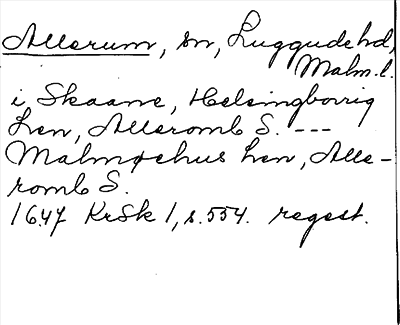 Allerum, sn, Luggude hd,
Malm. l.
i Skaane, Helsingborrig
Len, Alleromb S. ---
Malmøehus Len, Alle-
romb S.
1647 KrSk 1, s. 554. regest.